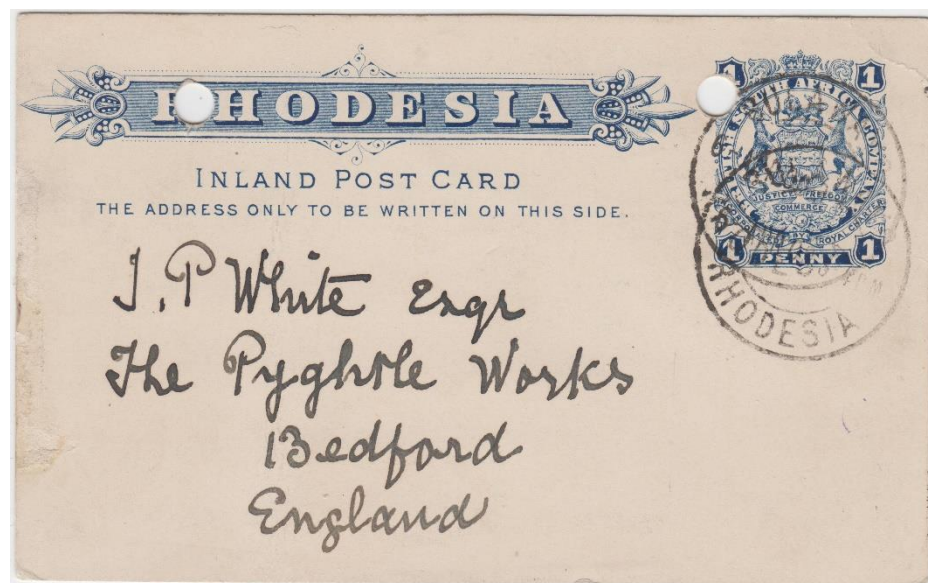 RHODESIA
INLAND POST CARD
THE ADDRESS ONLY TO BE WRITTEN ON THIS SIDE.
1 1
SOUTH AFRICA COMPANY
JUSTICE FREEDOM
COMMERCE
ROYAL CHARTER
1 PENNY 1
RHODESIA
J. P White Esqr
The Pyghtle Works
Bedford
England